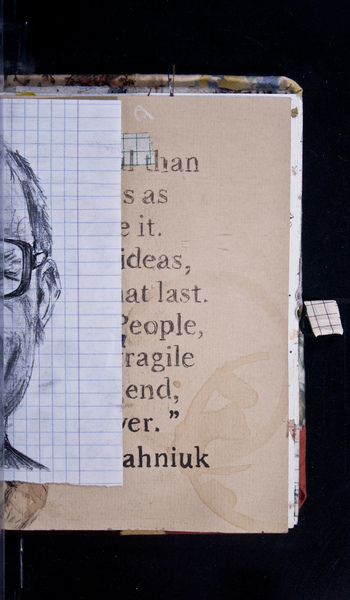 ul than
s as
e it.
ideas,
hat last.
People,
fragile
end,
ver.”
ahniuk